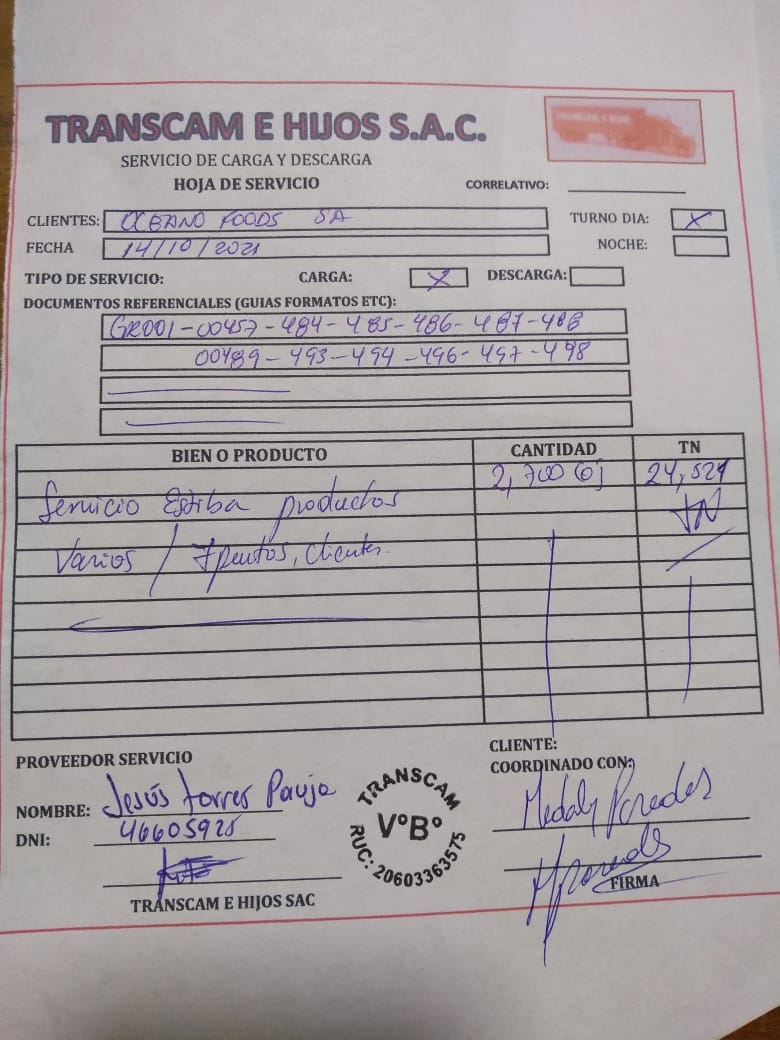 TRANSCAM E HIJOS S.A.C.
SERVICIO DE CARGA Y DESCARGA
HOJA DE SERVICIO
CORRELATIVO:
CLIENTES: OCEANO FOODS SA
TURNO DIA: X
FECHA 14/10/2021
NOCHE:
TIPO DE SERVICIO: CARGA: X DESCARGA:
DOCUMENTOS REFERENCIALES (GUIAS FORMATOS ETC):
GR001-00457-484-485-486-487-488
00489-493-494-496-497-498
BIEN O PRODUCTO CANTIDAD TN
2,700 24,524
Servicio Estiba productos TN
Varios / 7 puntos, clientes.
PROVEEDOR SERVICIO
CLIENTE:
COORDINADO CON:
NOMBRE: Jesús Torres Pauja
Medaly Paredes
DNI: 46605925
TRANSCAM
V°B°
RUC: 20603363575
FIRMA
TRANSCAM E HIJOS SAC